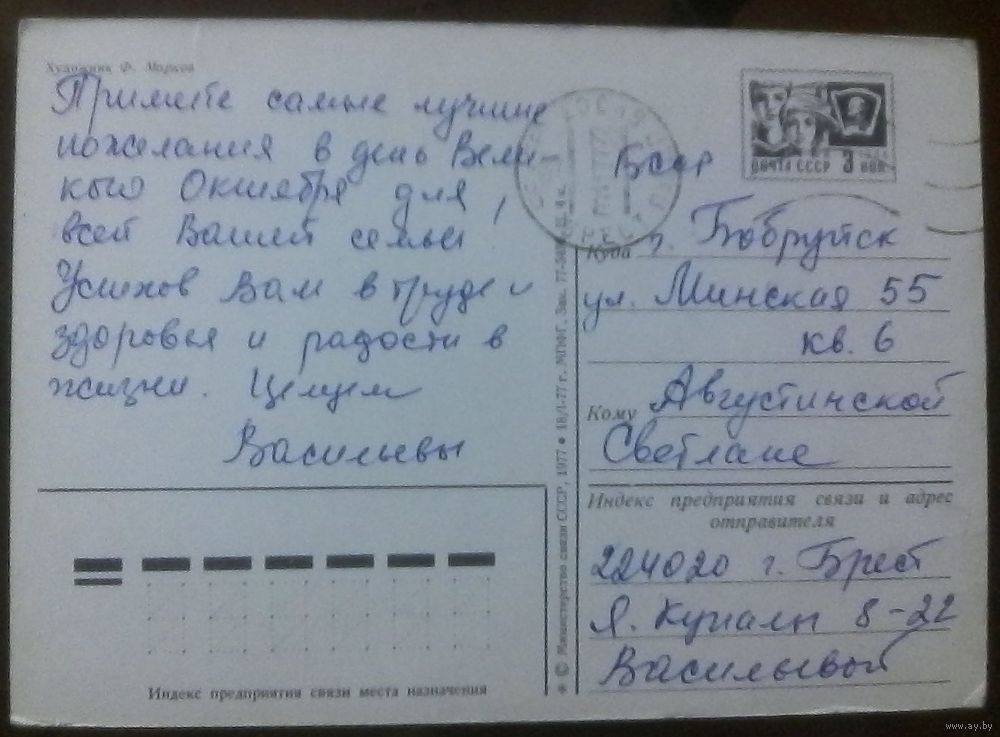 Художник Ф. Марков
Примите самые лучшие
пожелания в день Вели-
кого Октября для
всей Вашей семьи!
Успехов Вам в труде и
здоровья и радости в
жизни. Целуем
Васильевы
ПОЧТА СССР 3 КОП
БССР
Куда г. Бобруйск
ул. Минская 55
кв. 6
Кому Августинской
Светлане
Индекс предприятия связи и адрес
отправителя
224020 г. Брест
Я. Купалы 8-22
Васильевой
Индекс предприятия связи места назначения
© Министерство связи СССР, 1977 • 18/I-77 г. МПФГ. Зак.
www.ay.by